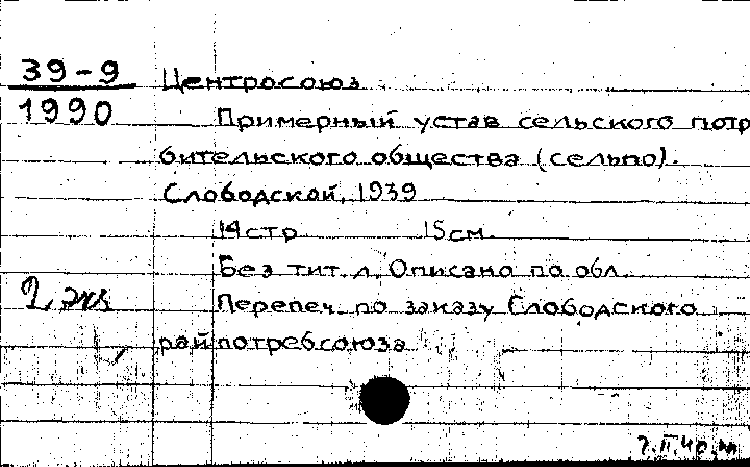 39-9
1990
Центросоюз
Примерный устав сельского потр
бительского общества (сельпо).
Слободской, 1939
14 стр 15 см.
Без тит. л. Описано по обл.
2 экз
Перепеч. по заказу Слободского
райпотребсоюза